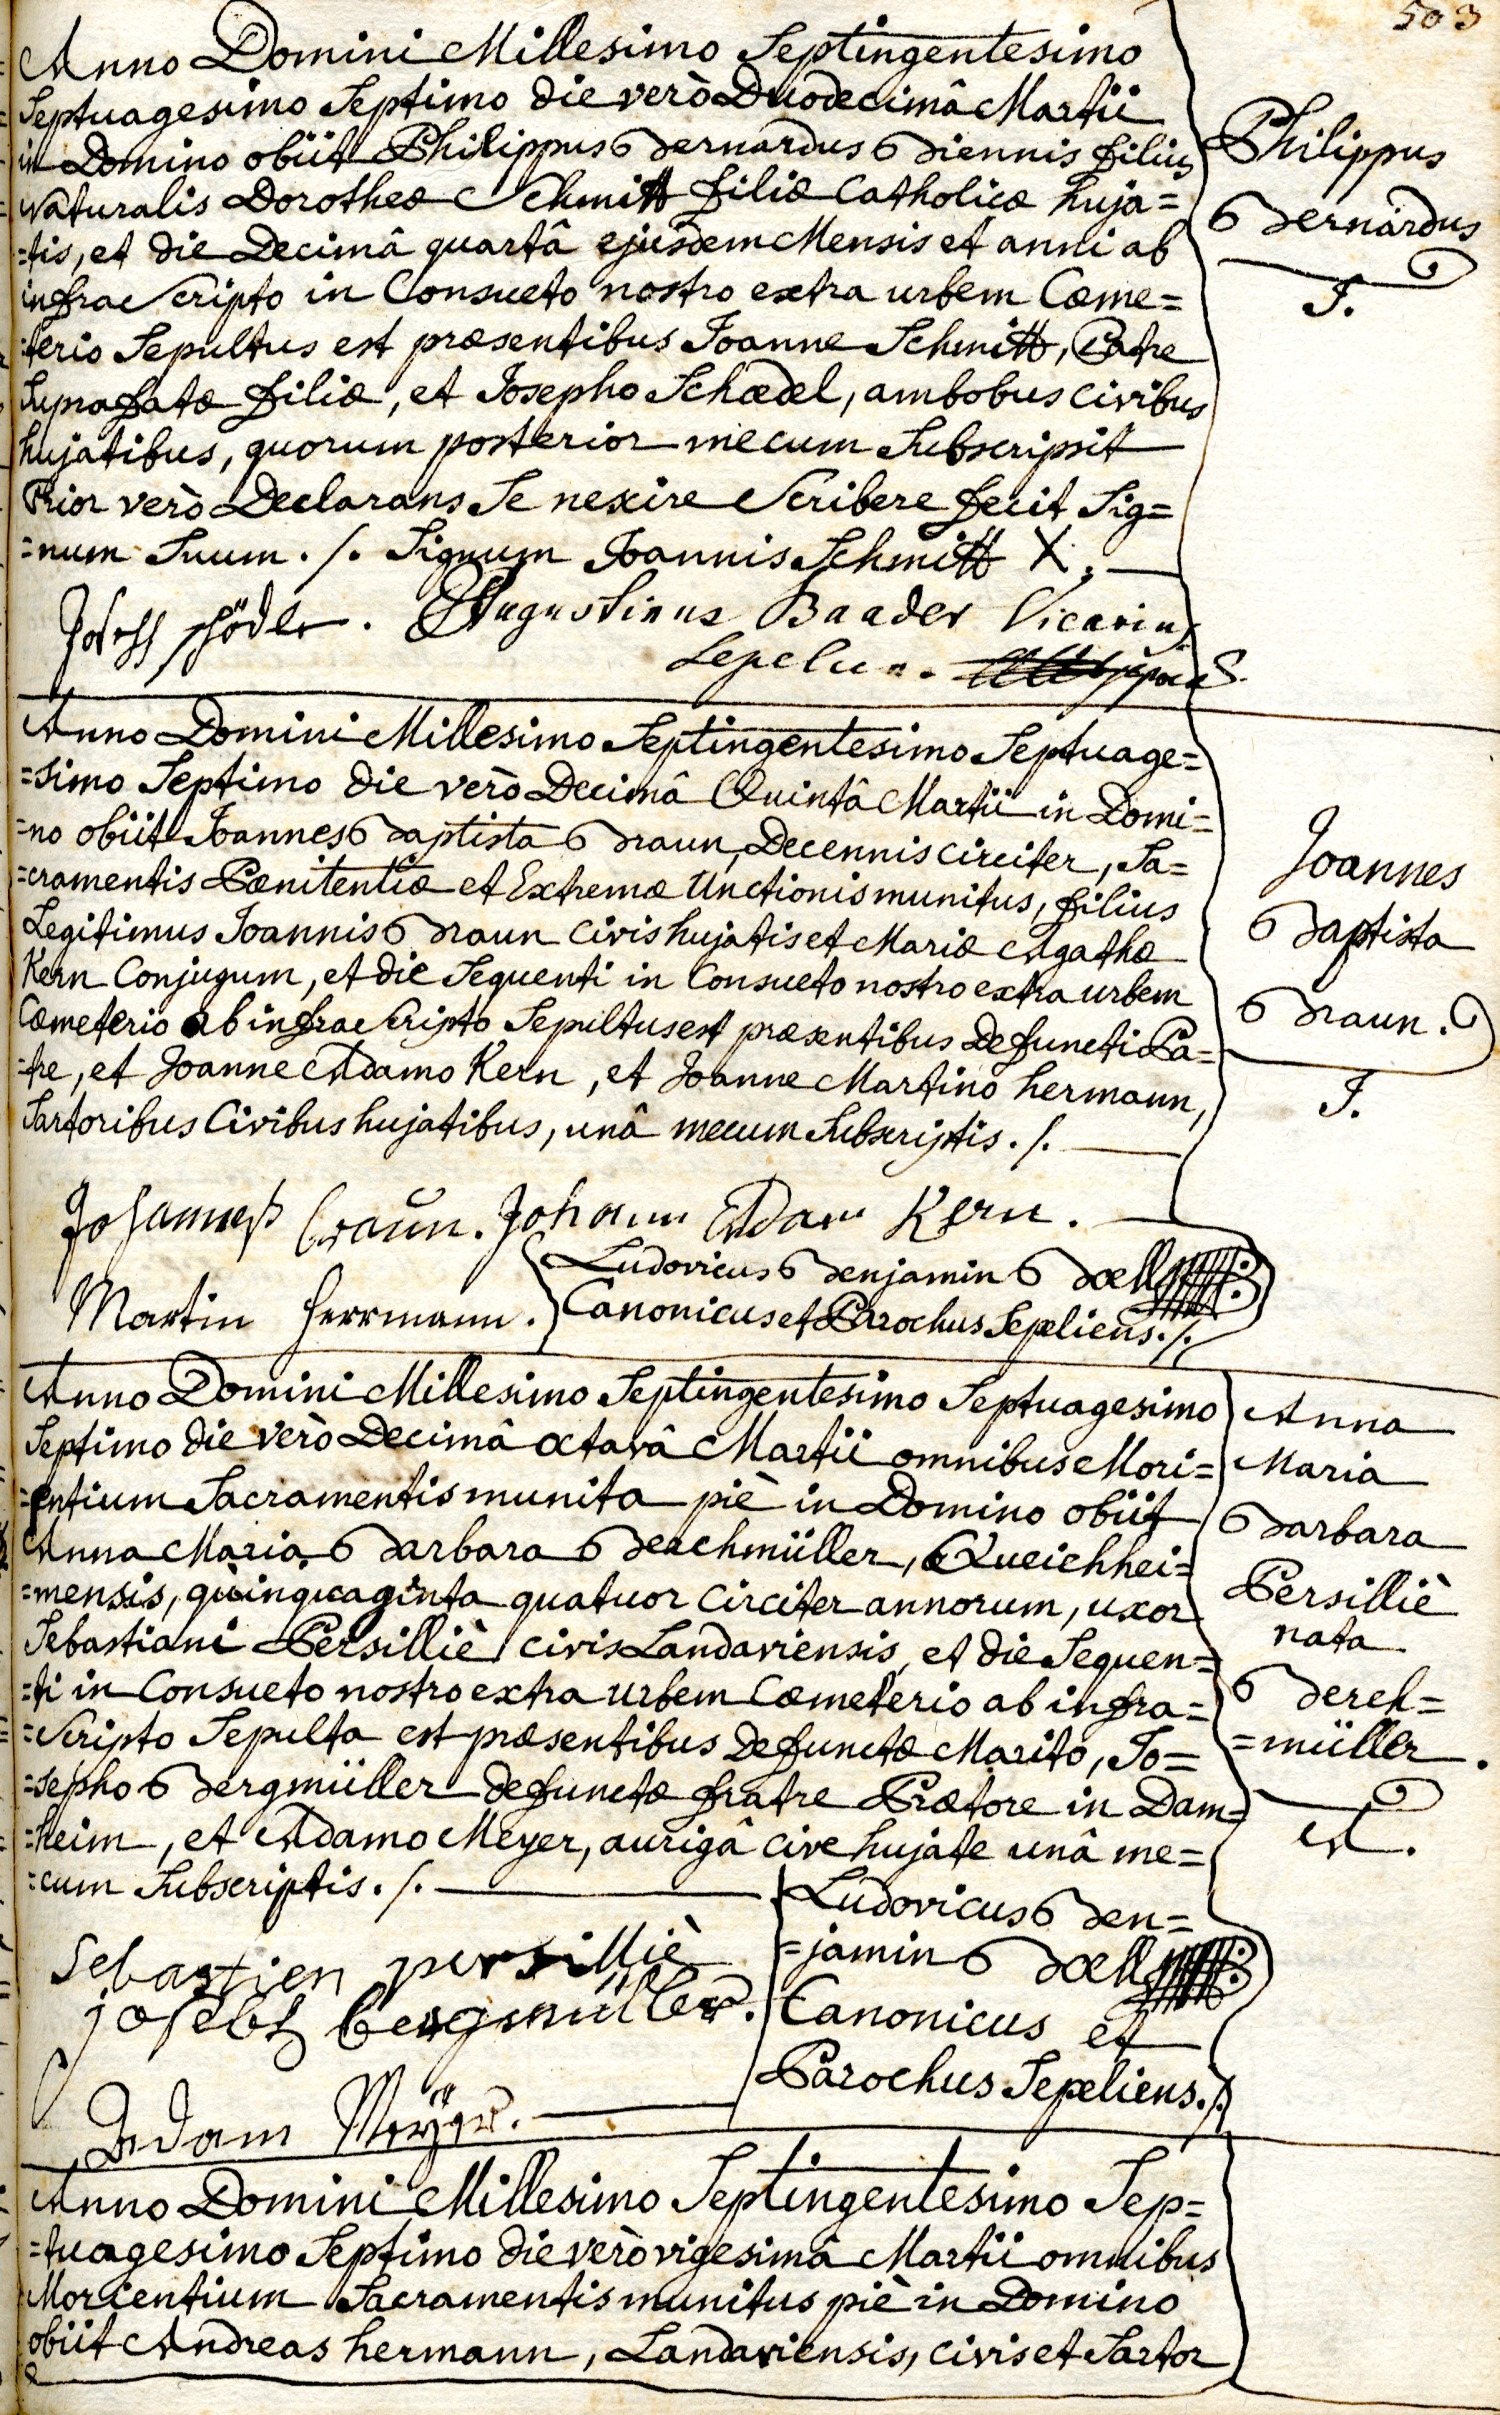 503
Anno Domini Millesimo Septingentesimo
Septuagesimo Septimo die verò Duodecimâ Martii
in Domino obiit Philippus Bernardus Biennis filius
Naturalis Dorotheæ Schmitt filiæ Catholicæ huja=
=tis, et die Decimâ quartâ ejusdem Mensis et anni ab
infrascripto in Consueto nostro extra urbem Cœme=
=terio Sepultus est præsentibus Joanne Schmitt, Patre
Suprafatæ filiæ, et Josepho Schædel, ambobus civibus
hujatibus, quorum posterior mecum Subscripsit
Prior verò Declarans Se nescire Scribere fecit Sig=
=num Suum ./. Signum Joannis Schmitt X.
Philippus
Bernardus
J.
Joseph schödler. Augustinus Baader Vicarius
Sepeliens.
Anno Domini Millesimo Septingentesimo Septuage=
=simo Septimo die verò Decimâ Quintâ Martii in Domi=
=no obiit Joannes Baptista Braun, Decennis circiter, Sa=
=cramentis Pœnitentiæ et Extremæ Unctionis munitus, filius
Legitimus Joannis Braun Civis hujatis et Mariæ Agathæ
Kern Conjugum, et die Sequenti in Consueto nostro extra urbem
Cœmeterio ab infrascripto Sepultus est præsentibus Defuncti Pa=
=tre, et Joanne Adamo Kern, et Joanne Martino hermann,
Sartoribus Civibus hujatibus, unâ mecum Subscriptis ./.
Joannes
Baptista
Braun.
J.
Johannes braun. Johann Adam Kern.
Martin herrmann.
Ludovicus Benjamin Bœll
Canonicus et Parochus Sepeliens ./.
Anno Domini Millesimo Septingentesimo Septuagesimo
Septimo die verò Decimâ octavâ Martii omnibus Mori=
=entium Sacramentis munita piè in Domino obiit
Anna Maria Barbara Berchmüller, Queichhei=
=mensis, quinquaginta quatuor circiter annorum, uxor
Sebastiani Persilliè civis Landaviensis, et die Sequen=
=ti in Consueto nostro extra urbem Cœmeterio ab infra=
=Scripto Sepulta est præsentibus Defunctæ Marito, Jo=
=sepho Bergmüller Defunctæ fratre Prætore in Dam=
=heim, et Adamo Meyer, aurigâ cive hujate unâ me=
=cum Subscriptis ./.
Anna
Maria
Barbara
Persilliè
nata
Berch=
=müller.
A.
Sebastien persilliè
joseph bergmüller.
Adam Meÿer.
Ludovicus Ben=
=jamin Bœll
Canonicus et
Parochus Sepeliens ./.
Anno Domini Millesimo Septingentesimo Sep=
=tuagesimo Septimo die verò vigesimâ Martii omnibus
Morientium Sacramentis munitus piè in Domino
obiit Andreas hermann, Landaviensis, civis et Sartor